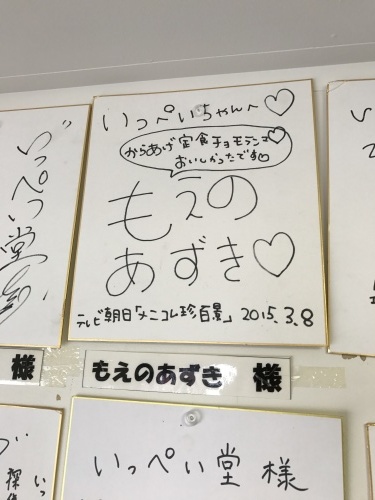 いっぺいちゃんへ♡
からあげ定食チョモランマ♡
おいしかったです♡
もえの
あずき♡
テレビ朝日「ナニコレ珍百景」 2015.3.8
いっぺい堂
様
もえのあずき 様
いっぺい堂 様
探偵